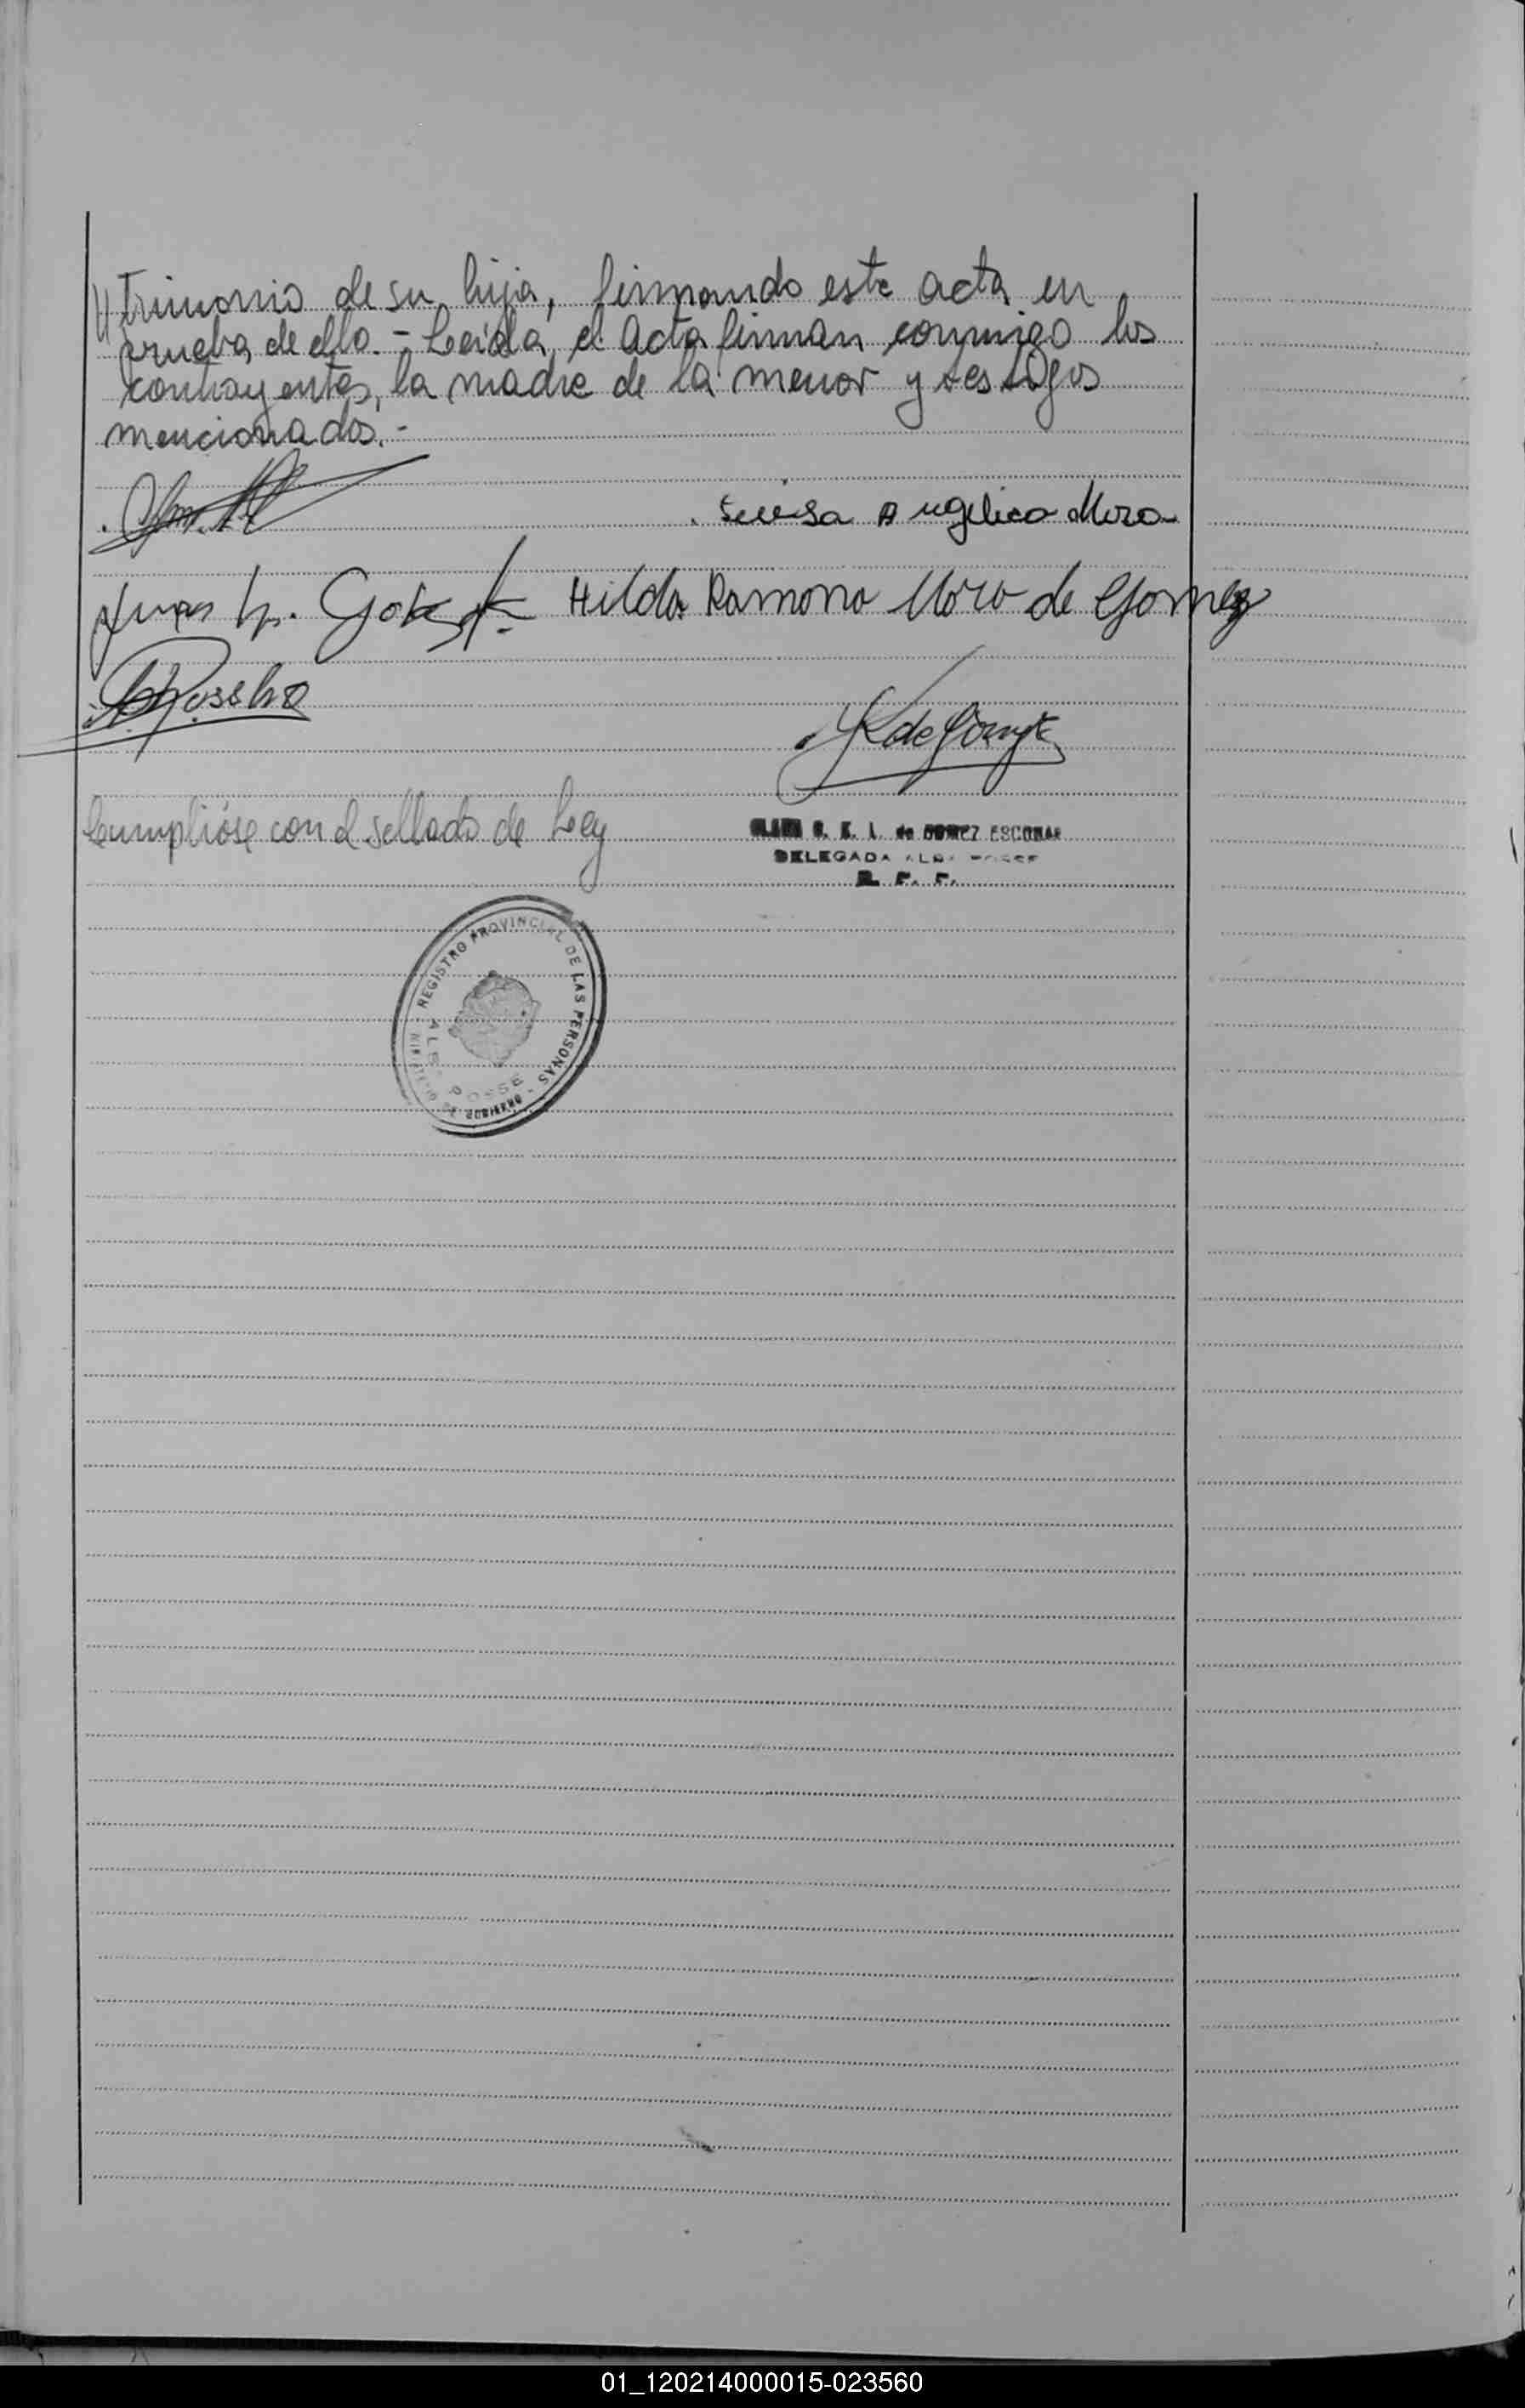 //trimonio de su hija, firmando este acta en
prueba de ello.- Leída el Acta firman conmigo los
contrayentes, la madre de la menor y testigos
mencionados.-
Luisa Angelica Mora
Juan Hilda Ramona Mora de Gomez
K de Gomez
Cumplióse con el sellado de Ley
S. K. L. de GOMEZ ESCOBAR
DELEGADA ALBA POSSE
R. P. P.
REGISTRO PROVINCIAL DE LAS PERSONAS
ALBA POSSE
01_120214000015-023560